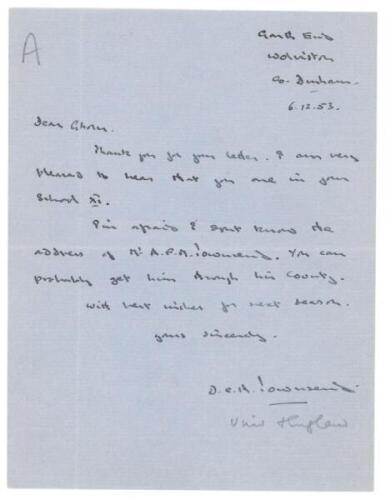 A
Garth End
Wolviston
Co. Durham.
6.12.53.
Dear
Thank you for your letter. I am very
pleased to hear that you are in your
School XI.
I'm afraid I don't know the
address of Mr A.F.A. Townsend. You can
probably get him through his County.
With best wishes for next season.
yours sincerely.
D.C.H. Townsend.
England